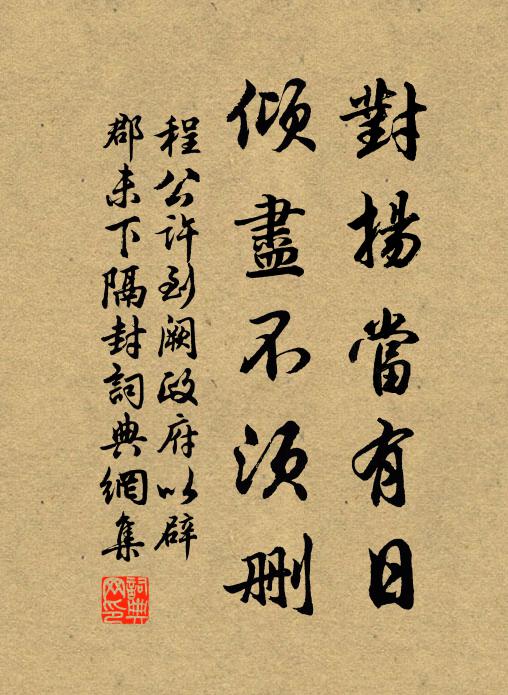 對揚當有日
傾盡不須刪
程公許到闕政府以辟
郡未下隔封詞典網集
詞典网印